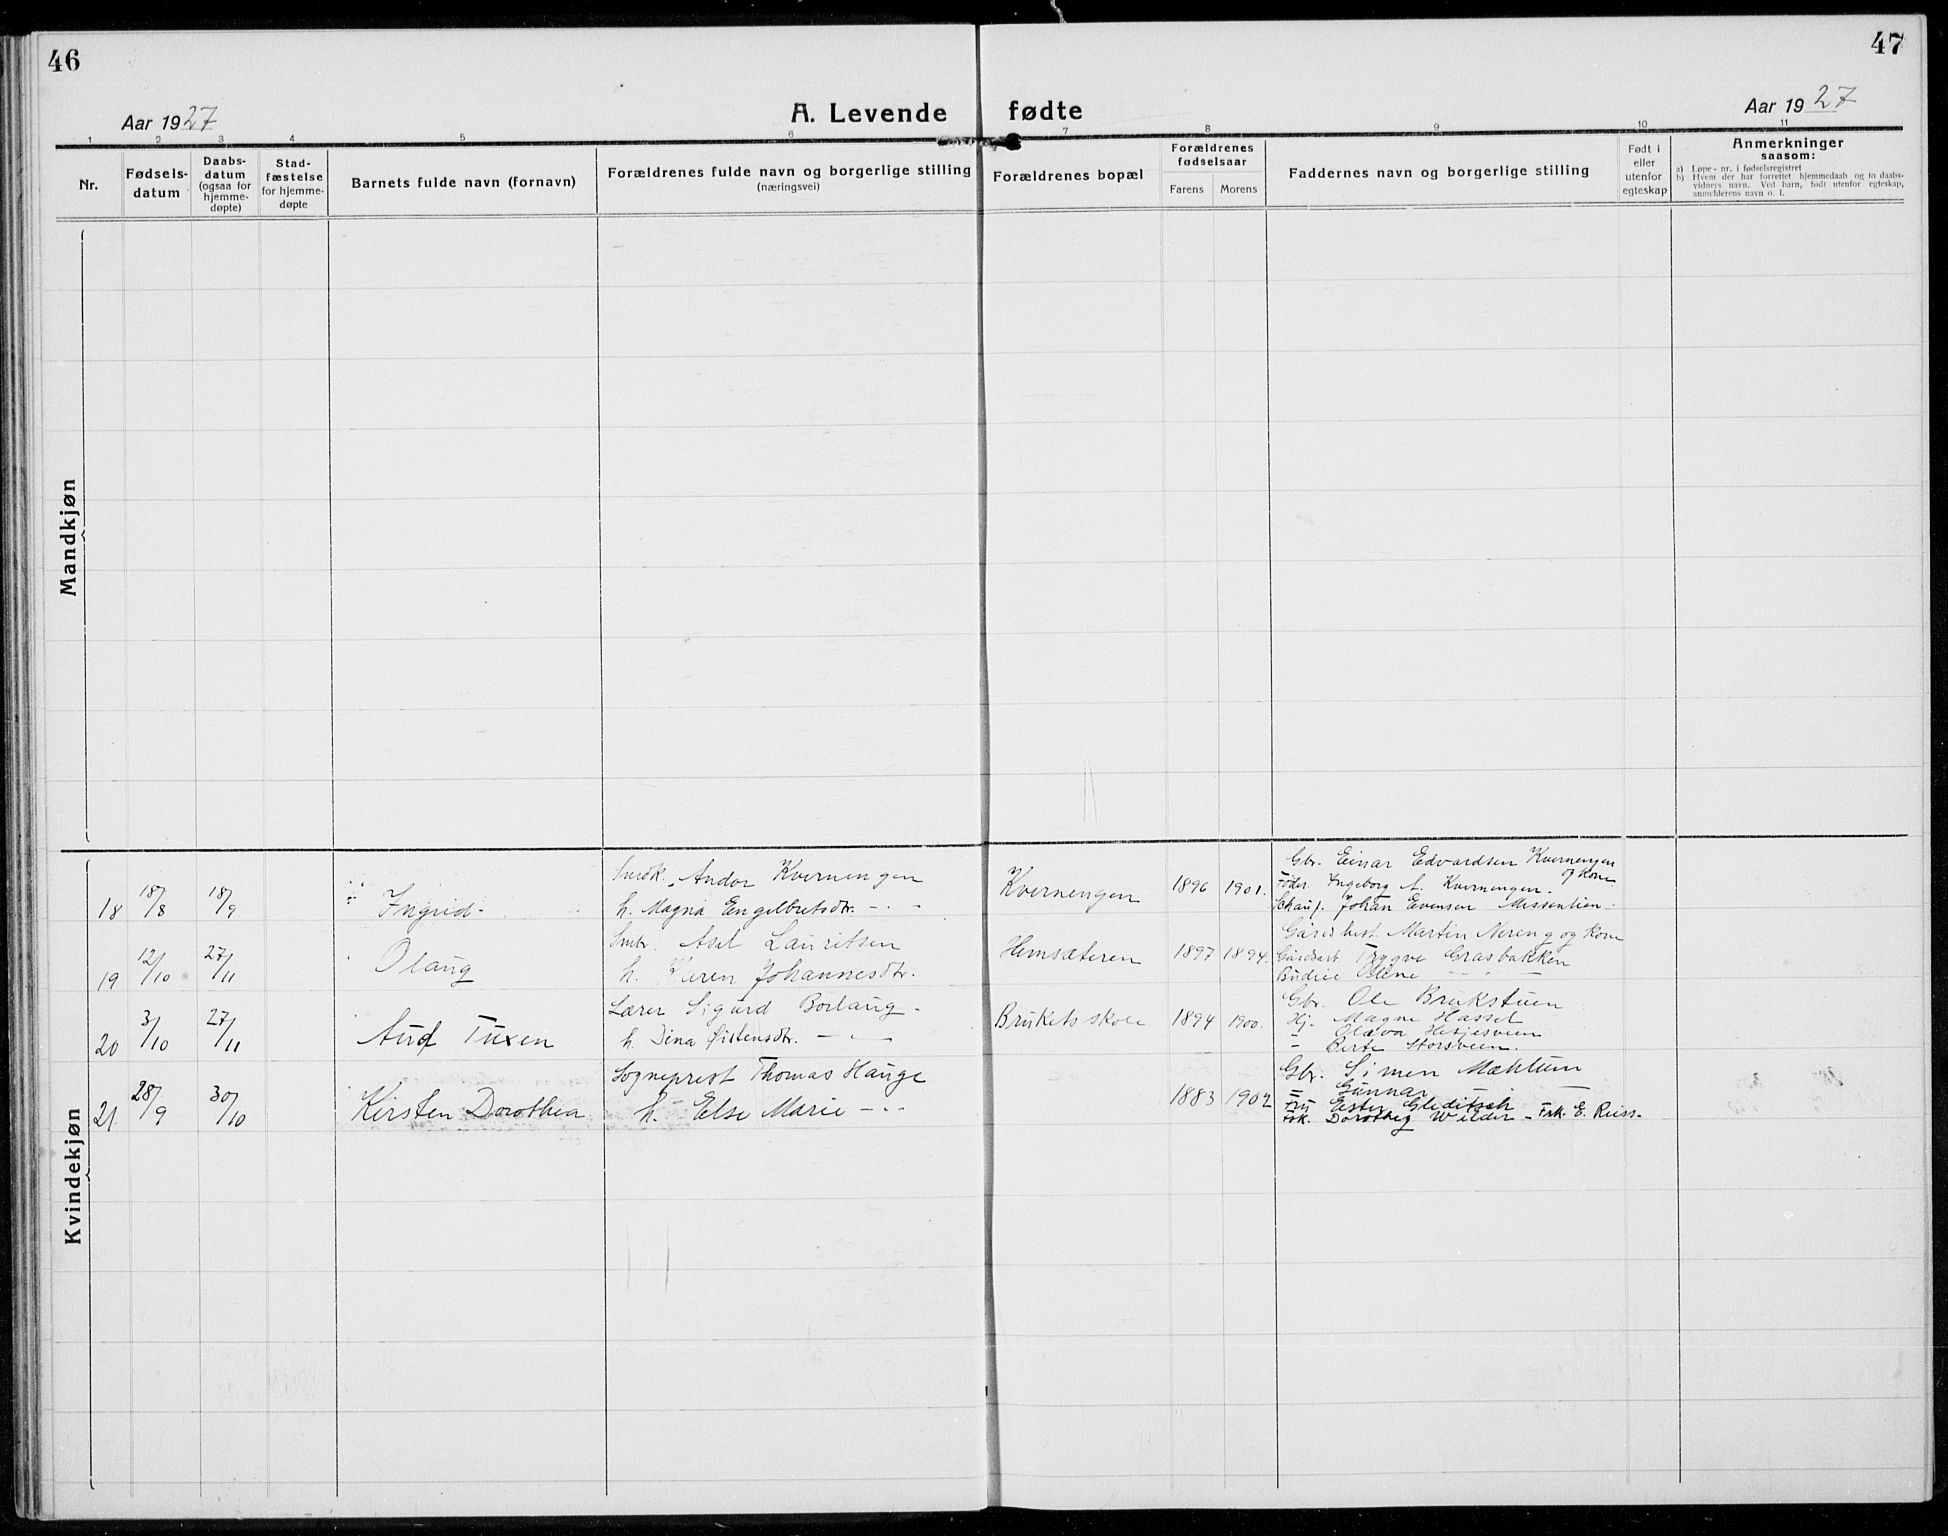 46
47
Aar 1927
A. Levende fødte
Aar 1927
1 2 3 4 5 6 7 8 9 10 11
Nr.
Fødsels-
datum
Daabs-
datum
(ogsaa for
hjemme-
døpte)
Stad-
fæstelse
for hjemme-
døpte
Barnets fulde navn (fornavn)
Forældrenes fulde navn og borgerlige stilling
(næringsvei)
Forældrenes bopæl
Forældrenes
fødselsaar
Farens Morens
Faddernes navn og borgerlige stilling
Født i
eller
utenfor
egteskap
Anmerkninger
saasom:
a) Løpe-nr. i fødselsregistret
b) Hvem der har forrettet hjemmedaab og to daabs-
vidners navn. Ved barn, født utenfor egteskap,
anmelderens navn o. l.
Mandkjøn
Kvindekjøn
18 18/8 18/9 Ingrid
Andor Kvernengen
h. Magna Engelbretsdtr. - " -
Kvernengen 1896 1901.
Gbr. Einar Edvardsen Kvernengen
og kone
Ingeborg A. Kvernengen.
Schauf. Johan Evensen Messenlien
19 12/10 27/11 Olaug
Smbr. Axel Lauritsen
h. Karen Johannesdtr.
Hemsæteren 1897 1894.
Gårdbest. Martin Nereng og kone
Gårdsarb. Trygve Grasbakken
Budeie Oline - " -
20 3/10 27/11 Aud Tuxen
Lærer Sigurd Borlaug
h. Dina Østensdtr. - " -
Brukets skole 1894 1900.
Gbr. Ole Brukstuen
Hj. Magne Hassel
- Olava Hesjesveen
- Berte Storsveen.
21. 28/9 30/10 Kirsten Dorothea
Sogneprest Thomas Hauge
h. Else Marie - " -
1883 1902
Gbr. Simen Mæhlum
= Gunnar —
Fru Ester Gleditsch
Frk. Dorothy Wilder - Frk. E. Reiss-